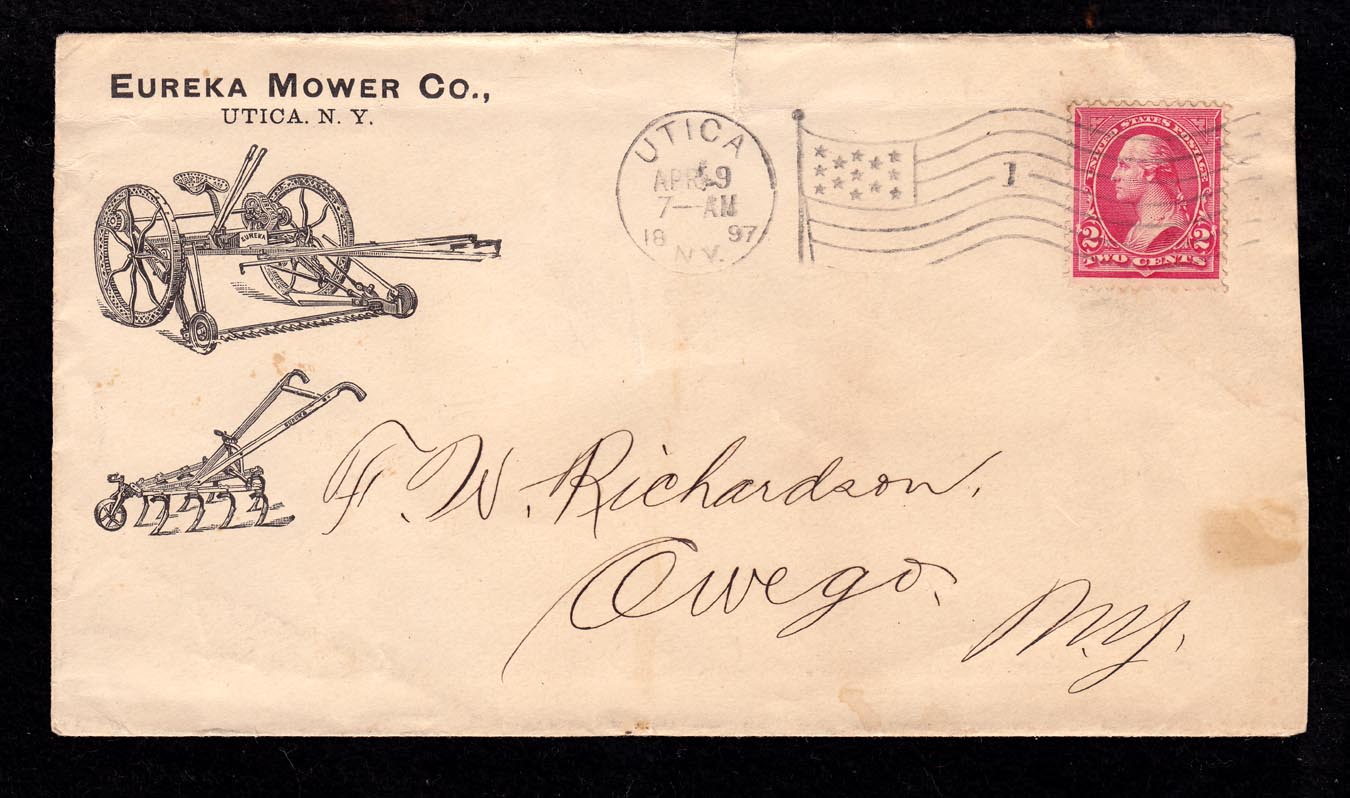 EUREKA MOWER CO.,
UTICA. N. Y.
EUREKA
EUREKA
UTICA
APR 9
7—AM
18 97
N.Y.
1
UNITED STATES POSTAGE
2 2
TWO CENTS
F. W. Richardson.
Owego.
N.Y.